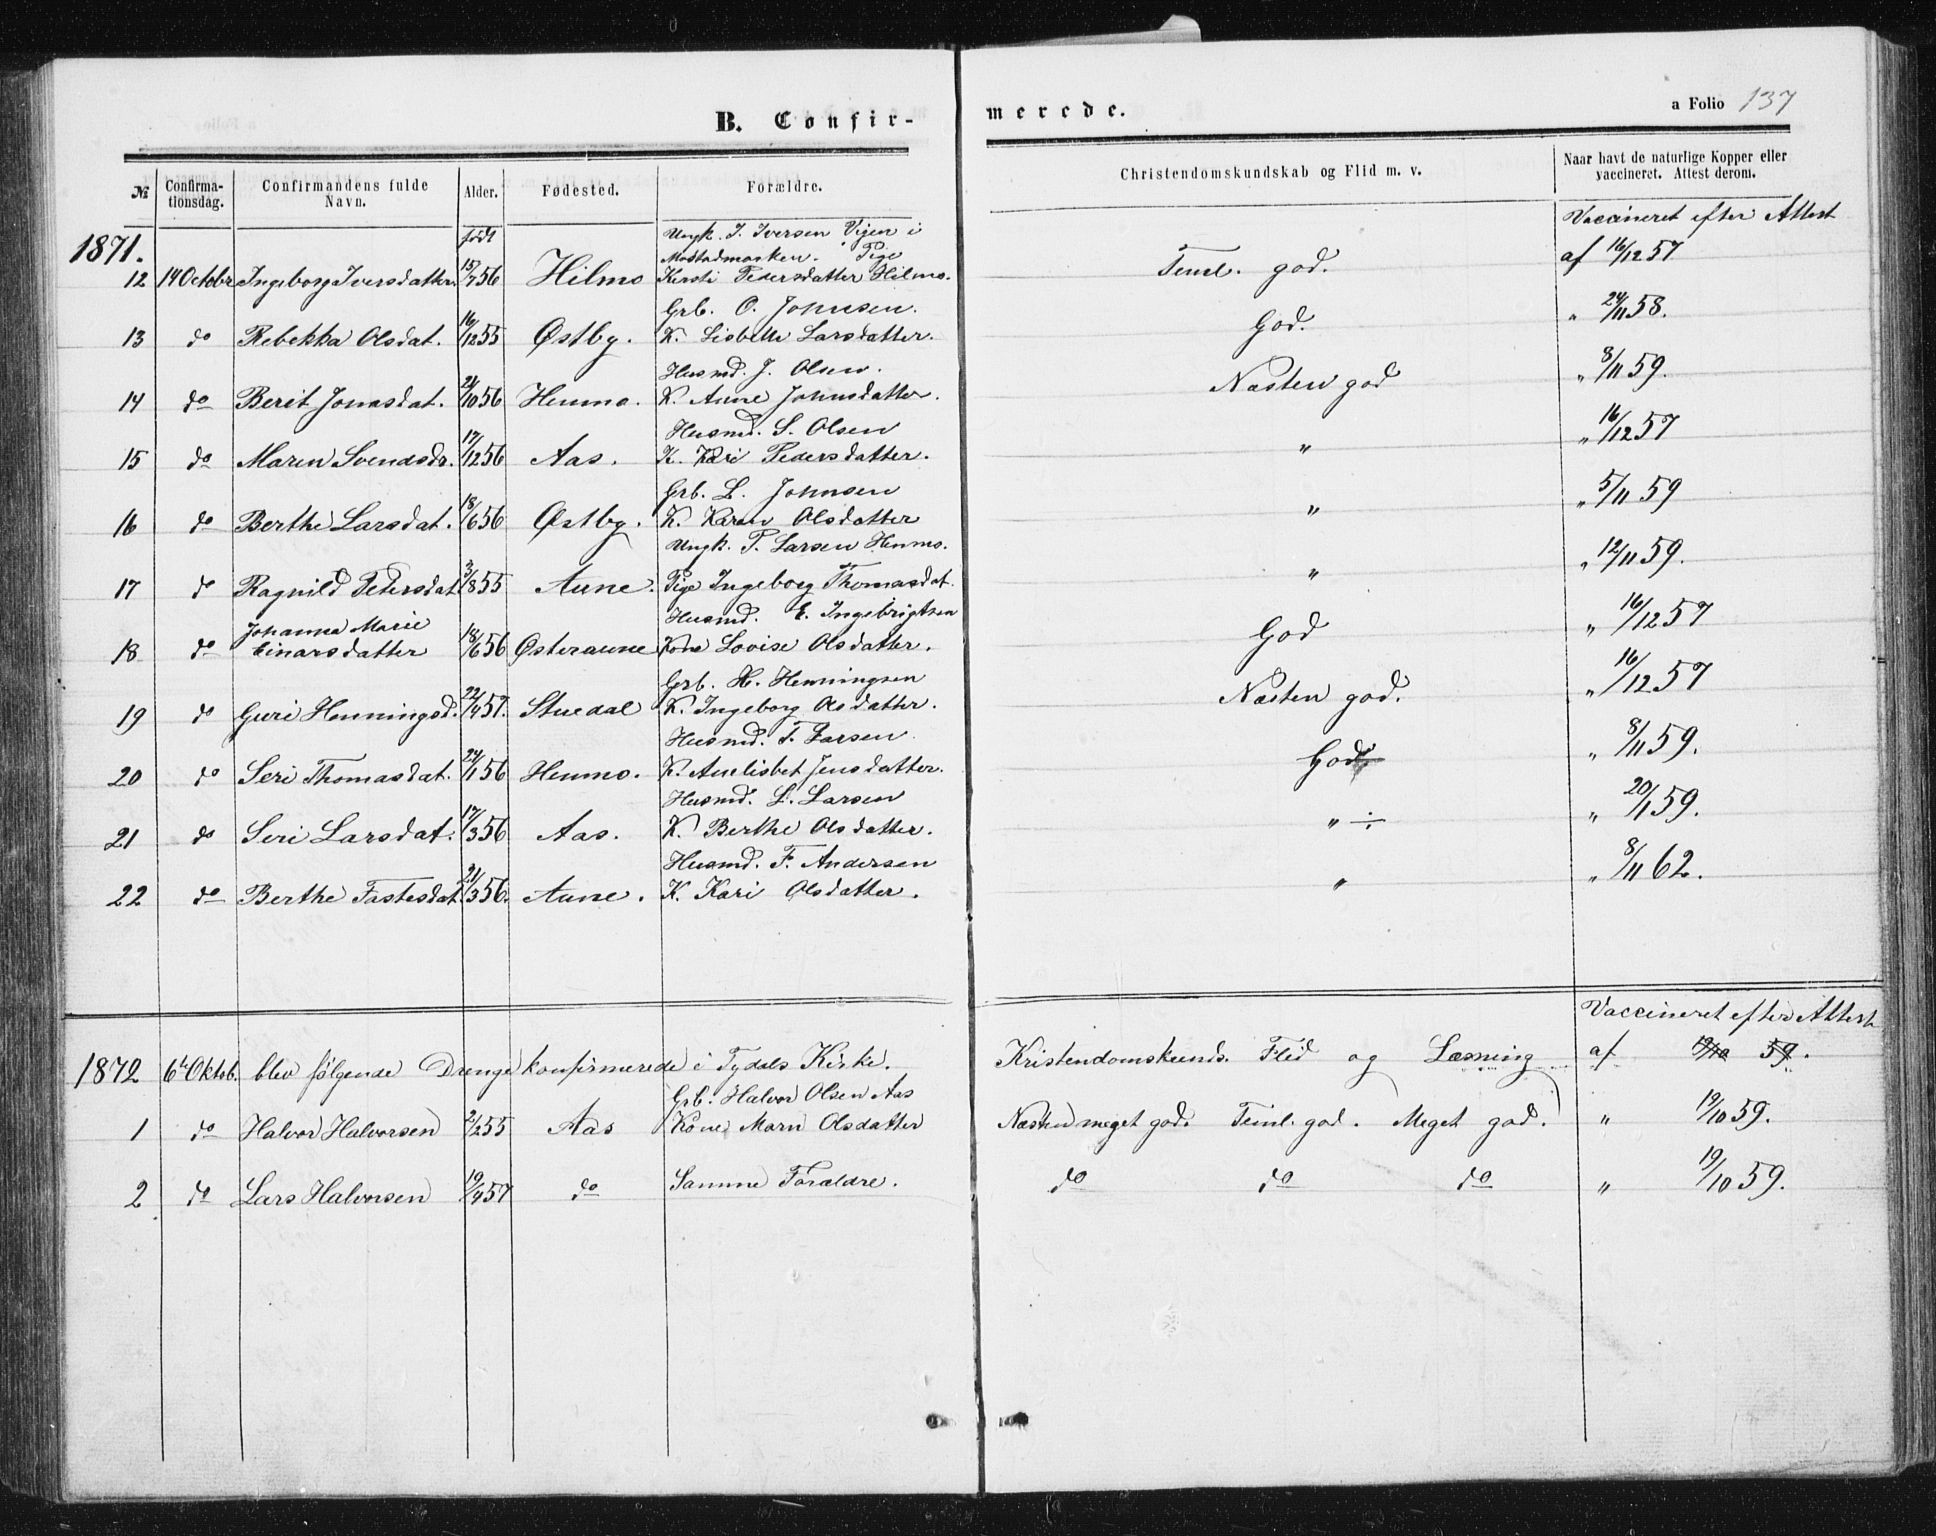 B. Confir-
merede.
a Folio 137
№ Confirma-tionsdag. Confirmandens fulde Navn. Alder. Fødested. Forældre. Christendomskundskab og Flid m. v. Naar havt de naturlige Kopper eller vaccineret. Attest derom.
1871. født Ungk. I. Iversen Vijen i Vaccineret efter Attest
Mostadmarken. Pige
12 14 Octobr Ingeborg Iversdatter 15/7 56 Hilmo Kersti Pedersdatter Hilmo. Teml. god. af 16/12 57
Grb. O. Johnsen.
13 do Rebekka Olsdat. 16/12 55 Østby. K. Lisbette Larsdatter. God. " 24/11 58.
Husmd. J. Olsen.
14 do Berit Jonasdat. 24/10 56 Henmo. K. Anne Johnsdatter. Næsten god " 8/11 59.
Husmd. S. Olsen
15 do Maren Svendsdr. 17/12 56 Aas. K. Kari Pedersdatter. " " 16/12 57
Grb. L. Johnsen
16 do Berthe Larsdat. 18/6 56 Østby. K. Karen Olsdatter " " 5/11 59
Ungk. P. Larsen Henmo.
17 do Ragnild Petersdat. 3/8 55 Aune. Pige Ingeborg Thomasdat. " " 12/11 59.
Johanna Marie Husmd. E. Ingebrigtsen
18 do Einarsdatter 18/6 56 Østeraune Kone Lovise Olsdatter. God " 16/12 57
Grb. H. Henningsen
19 do Guri Henningsd. 22/4 57. Stuedal K. Ingeborg Olsdatter. Næsten god. " 16/12 57
Husmd. T. Larsen
20 do Seri Thomasdat. 24/1 56 Henmo. K. Anelisbet Jensdatter. God÷ " 8/11 59.
Husmd. L. Larsen
21 do Seri Larsdat. 17/3 56 Aas. K. Berthe Olsdatter. " ÷ " 20/1 59.
Husmd. F. Andersen
22 do Berthe Fastesdat. 21/3 56. Aune. K. Kari Olsdatter. " " 8/11 62.
Vaccineret efter Attest
1872 6t Oktob. blev følgende Drenge konfirmerede i Tydals Kirke. Kristendomskunds. Flid og Læsning af 19/10 59.
Grb. Halvor Olsen Aas
1 do Halvor Halvorsen 21/2 55 Aas Kone Marn Olsdatter Næsten meget god. Teml. god. Meget god. " 19/10 59.
2 do Lars Halvorsen 19/4 57 do Samme Forældre. do do do " 19/10 59.